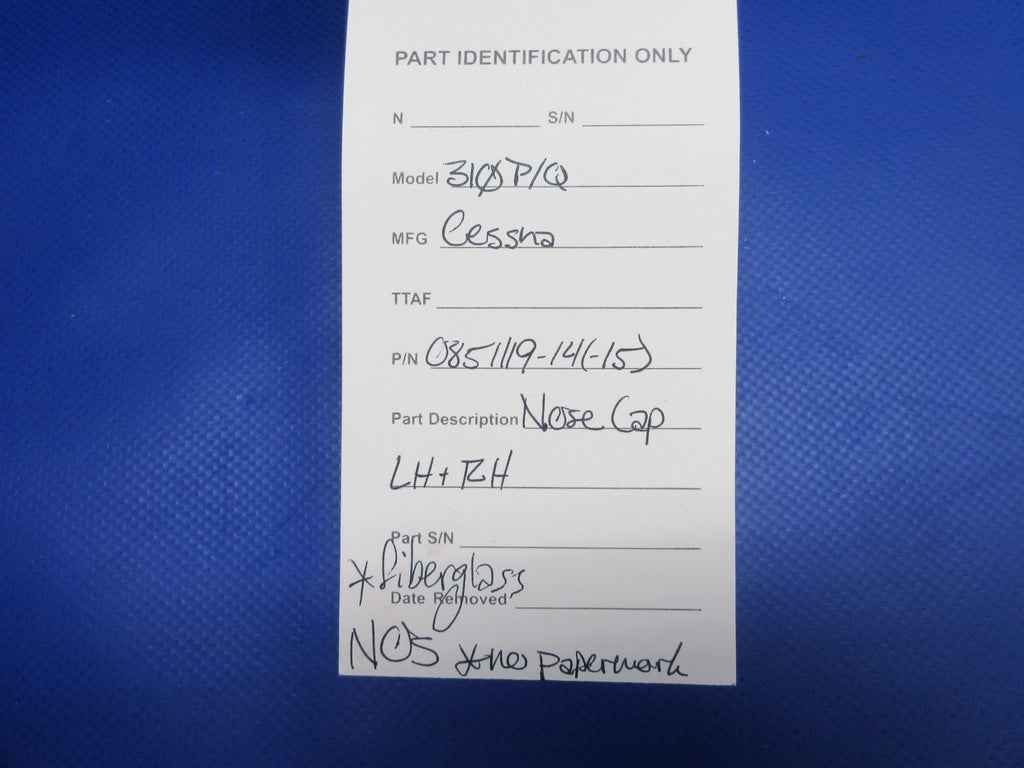 PART IDENTIFICATION ONLY
N S/N
Model 310 P/Q
MFG Cessna
TTAF
P/N 0851119-14(-15)
Part Description Nose Cap
LH + RH
Part S/N
*fiberglass
Date Removed
NOS *no papermark